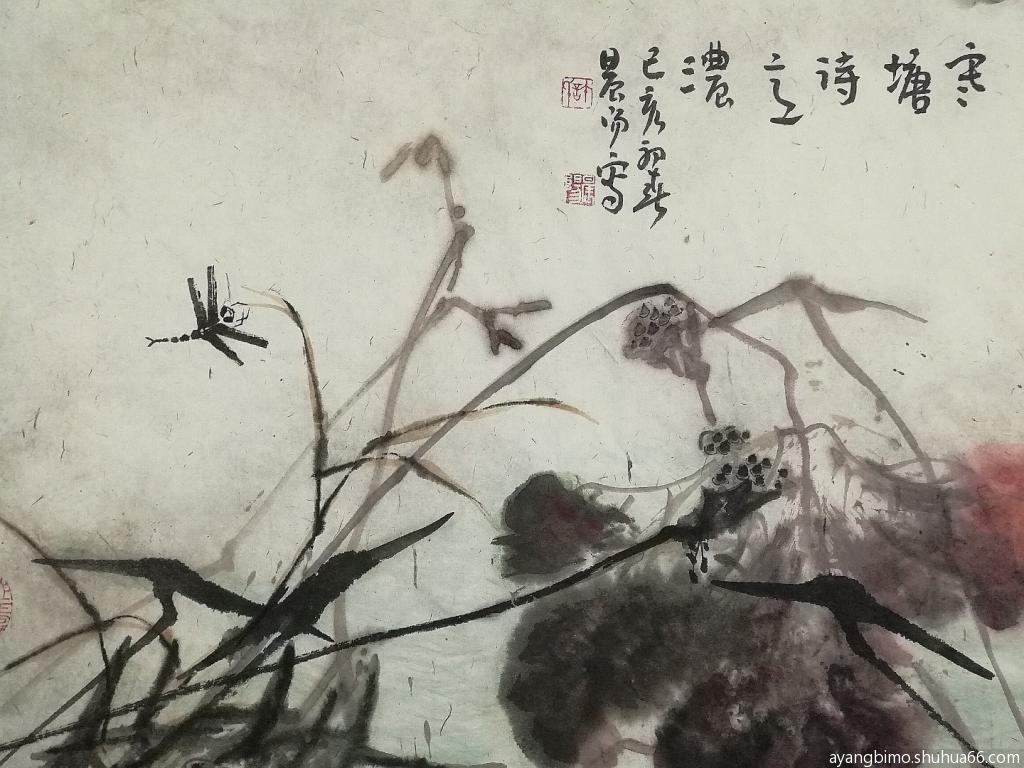 寒塘诗意濃
己亥初春
晨昜写
ayangbimo.shuhua66.com